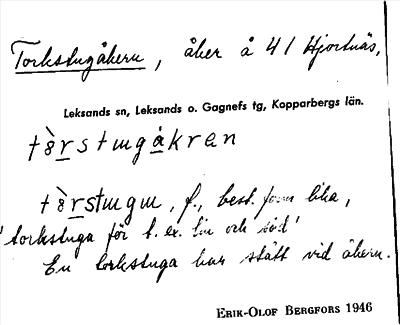 Torkstugåkern, åker å 41 Hjortnäs,
Leksands sn, Leksands o. Gagnefs tg, Kopparbergs län.
tò̈rstɯgåkran
tò̈rstɯgɯ, f., best. form lika,
'torkstuga för t. ex. lin och säd'
En torkstuga har stått vid åkern.
ERIK-OLOF BERGFORS 1946